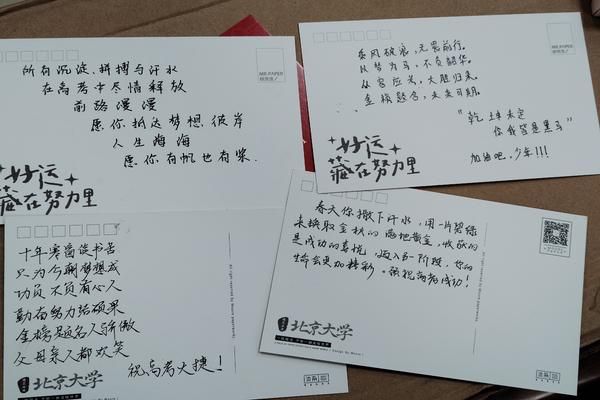 所有沉淀、拼搏与汗水
在高考中尽情释放
前路漫漫
愿你抵达梦想彼岸
人生海海
愿你有帆也有桨.
好运
藏在努力里
乘风破浪,无畏前行。
以梦为马,不负韶华。
从容应考,大胆归来。
金榜题名,未来可期。
"乾坤未定
你我皆是黑马"
加油吧,少年!!!
好运
藏在努力里
十年寒窗读书苦
只为今朝梦想成
功夫不负有心人
勤奋努力结硕果
金榜题名人骄傲
父母亲人都欢笑
祝高考大捷!
北京大学
春天你撒下汗水,用一片碧绿
来换取金秋的遍地黄金,收获的
是成功的喜悦,迈入另一阶段,你的
生命会更加精彩。预祝高考成功!
北京大学